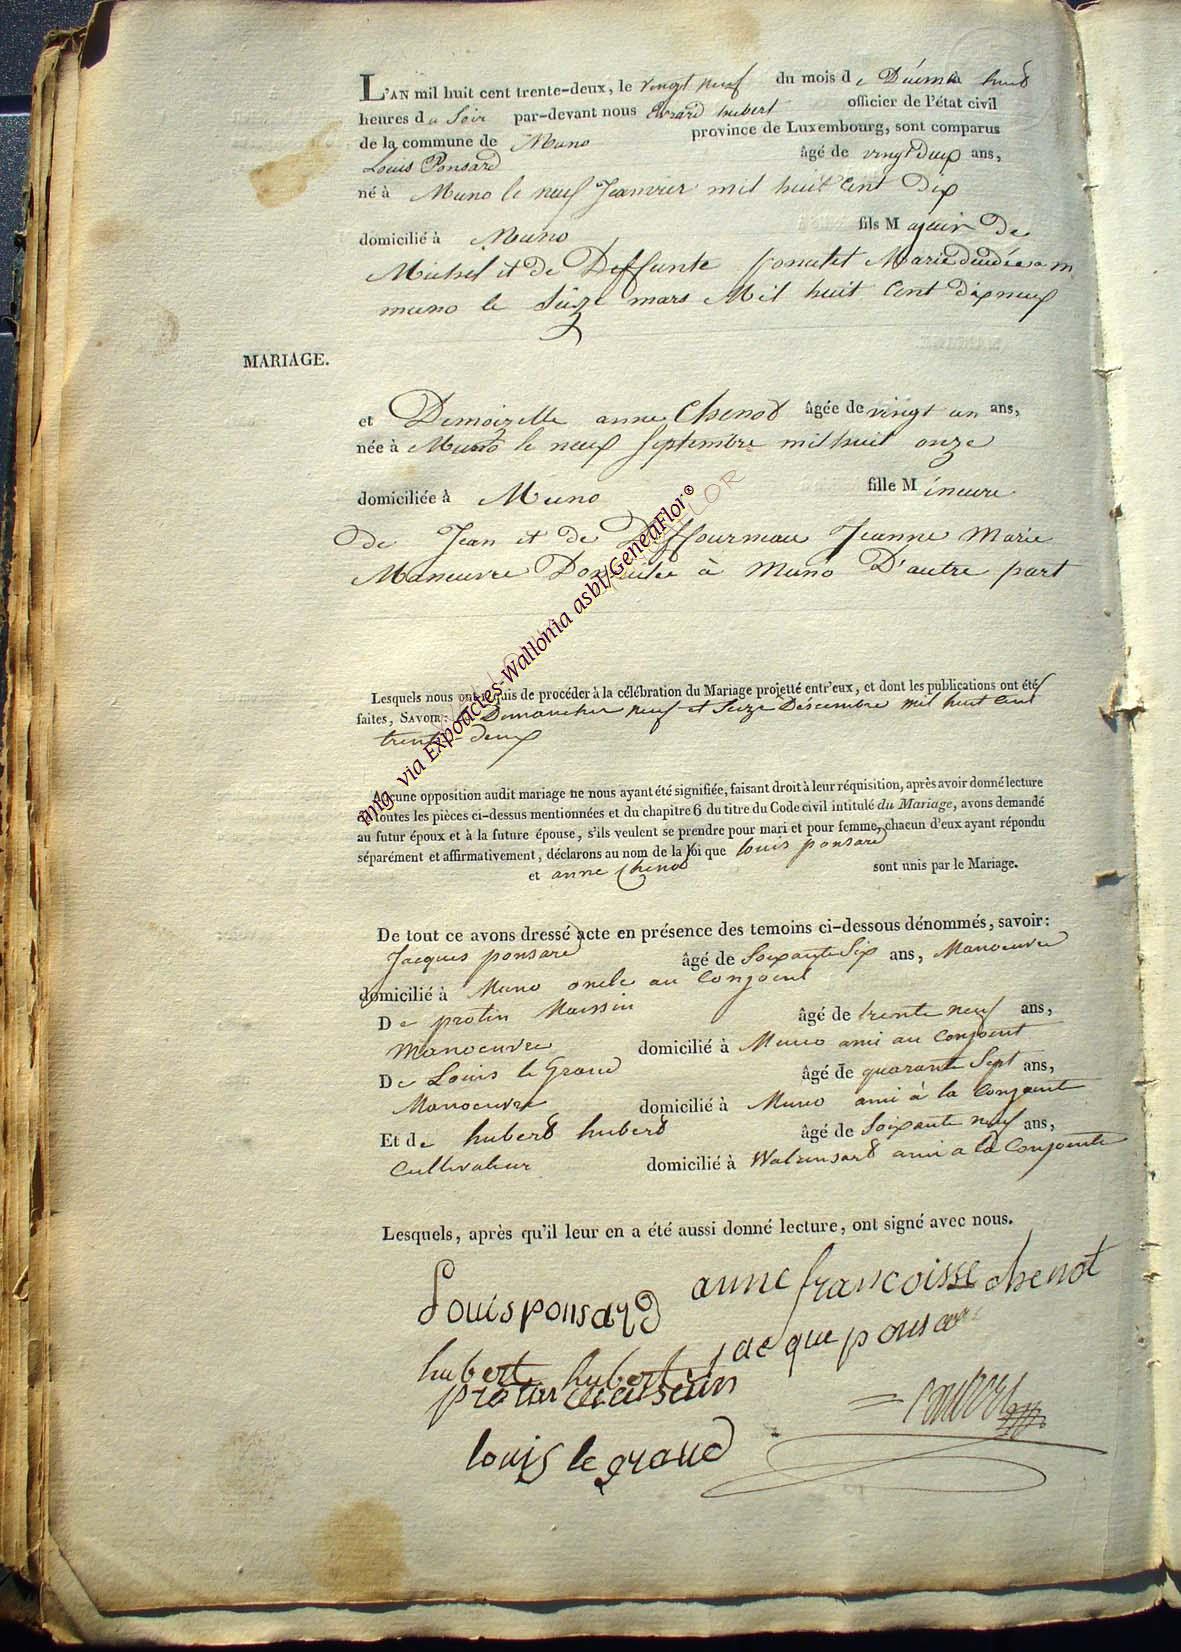 L'AN mil huit cent trente-deux, le vingt neuf du mois de Décemb à huit
heures du Soir par-devant nous Evrard hubert officier de l'état civil
de la commune de Muno province de Luxembourg, sont comparus
Louis Ponsard âgé de vingt deux ans,
né à Muno le neuf Jeanvier mil huit Cent Dix
domicilié à Muno fils Majeur De
Michel et de Deffunte Marie décédée a
muno le Seize mars Mil huit Cent dixneuf
MARIAGE.
et Demoizelle anne Chenot âgée de vingt un ans,
née à Muno le neuf Septembre mil huit onze
domiciliée à Muno fille Mineure
De Jean et de Deffourneau Jeanne Marie
Maneuvre Domiciliée à Muno D'autre part
Lesquels nous ont requis de procéder à la célébration du Mariage projetté entr'eux, et dont les publications ont été
faites, SAVOIR: Dimanches neuf et Seize Décembre mil huit Cent
trente deux
Aucune opposition audit mariage ne nous ayant été signifiée, faisant droit à leur réquisition, après avoir donné lecture
de toutes les pièces ci-dessus mentionnées et du chapitre 6 du titre du Code civil intitulé du Mariage, avons demandé
au futur époux et à la future épouse, s'ils veulent se prendre pour mari et pour femme, chacun d'eux ayant répondu
séparément et affirmativement, déclarons au nom de la loi que louis ponsard
et anne Chenot sont unis par le Mariage.
De tout ce avons dressé acte en présence des temoins ci-dessous dénommés, savoir:
Jacques ponsard âgé de Soixante Six ans, Manoeuvre
domicilié à Muno oncle au Conjoint
De protin Maissin âgé de trente neuf ans,
Manoeuvre domicilié à Muno ami au Conjoint
De Louis le Grand âgé de quarante Sept ans,
Manoeuvre domicilié à Muno ami à la Conjointe
Et de hubert hubert âgé de Soixante neuf ans,
Cultivateur domicilié à Watrinsart ami a la Conjointe
Lesquels, après qu'il leur en a été aussi donné lecture, ont signé avec nous.
Louis ponsard anne francoisse chenot
hubert hubert jacque ponsar
protin
louis le grand
img via Expoactes-Wallonia asbl/GeneaFlor®